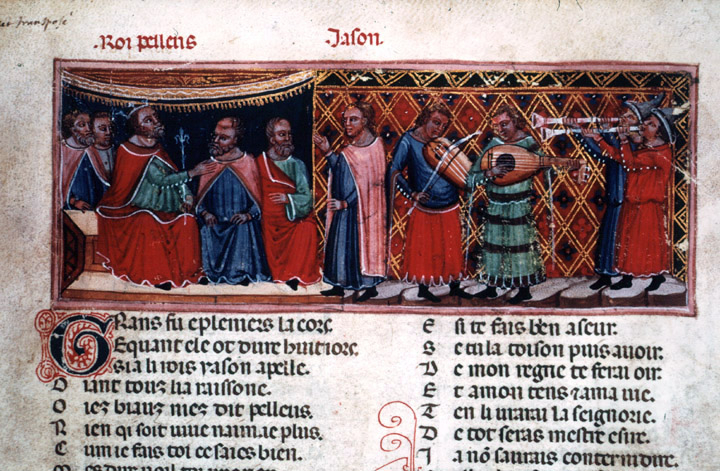 transposé
.Roi pelleus
Jason.
GRans fu e pleniers la corc
Equant ele ot dure huit iorc.
Si a li rois iason apelle.
D uant tous la raissone.
O iez biaus nies dit pelleus.
R ien qui soit uiue naim ie plus.
C um ie fais toi ce saies bien.
E si te fais ben aseur.
S e tu la toison puis auoir.
D e mon regne te ferai oir.
E t amon tens & a ma uie.
T en liurai la seignorie.
D e tot seras mestre e sire.
J a nō saurais